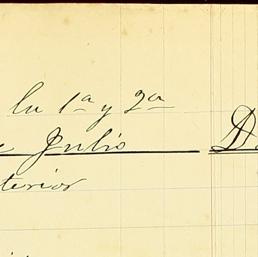 la 1ª y 2ª
Julio
terior